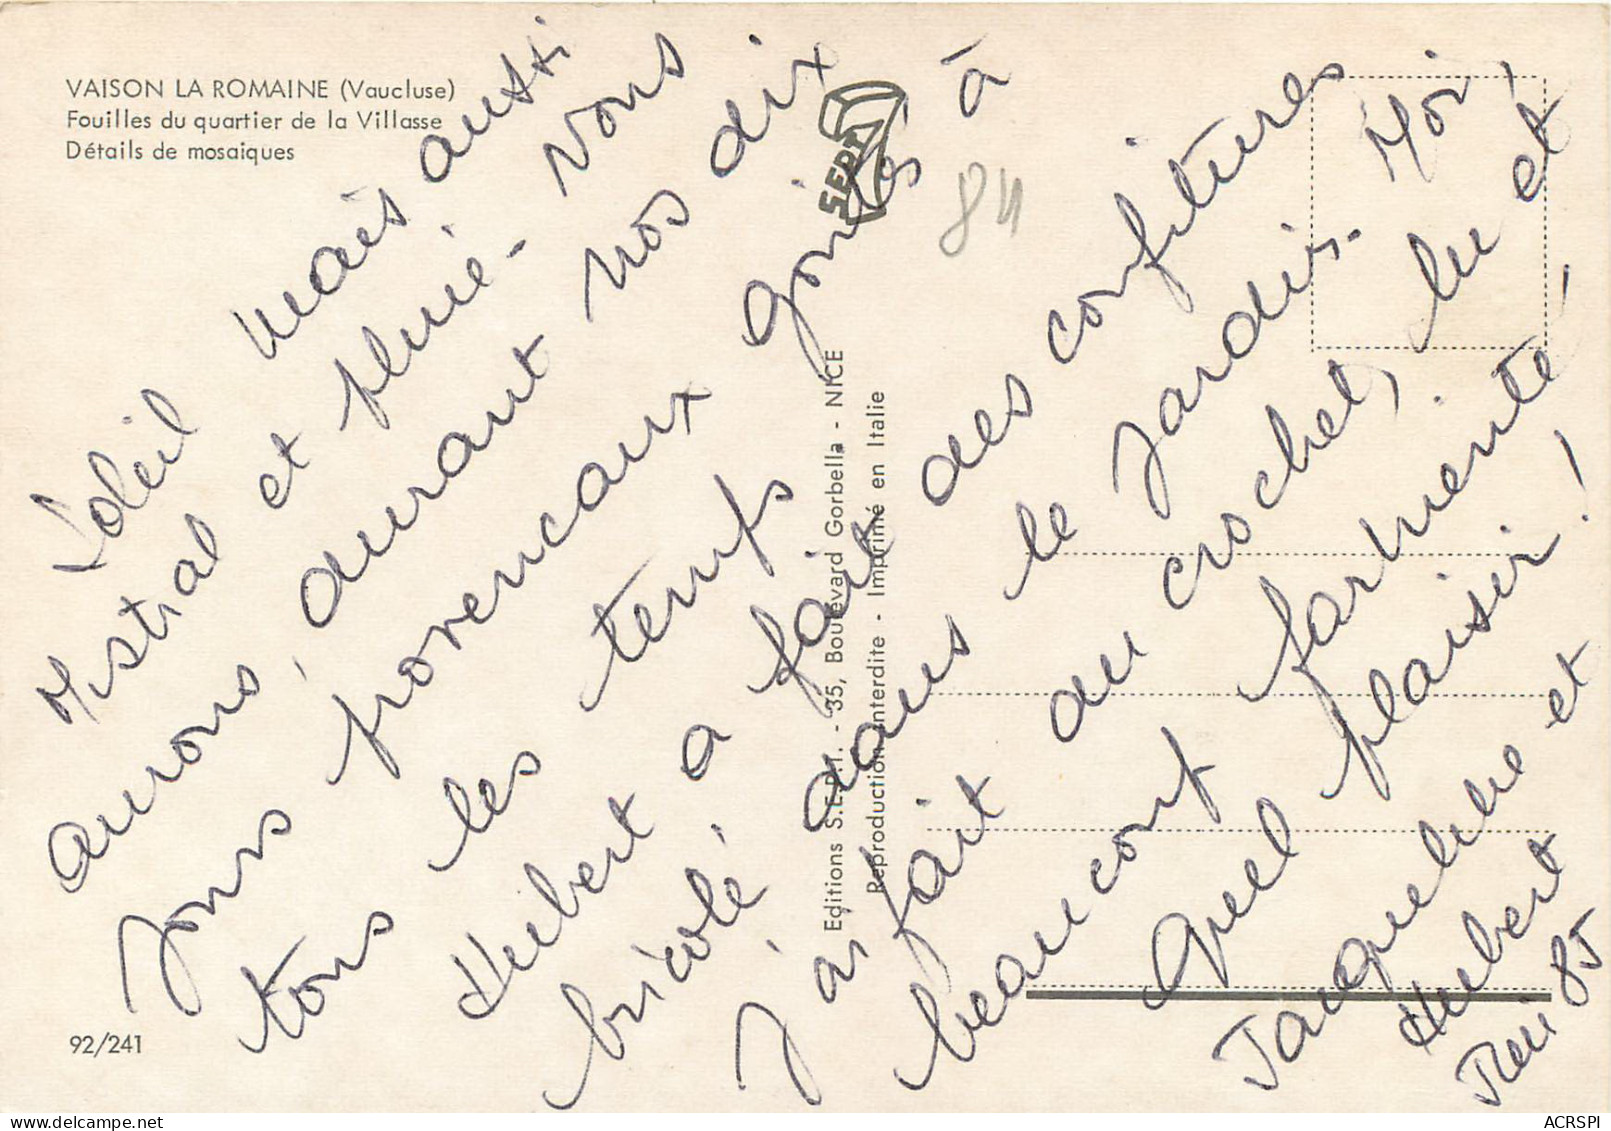 VAISON LA ROMAINE (Vaucluse)
Fouilles du quartier de la Villasse
Détails de mosaiques
Soleil mais aussi
Mistral et pluie. Vous
aurons, durant nos dix
jours provencaux goûtés à
tous les temps
Hubert a fait des confitures
bricolé dans le jardin. Moi,
J'ai fait du crochet, lu et
beaucoup farniente !
Quel plaisir !
Jacqueline et
Hubert
Mai 85
SEPT
84
Editions S.E.P.T. - 35, Boulevard Gorbella - NICE
Reproduction interdite - Imprimé en Italie
92/241
ACRSPI